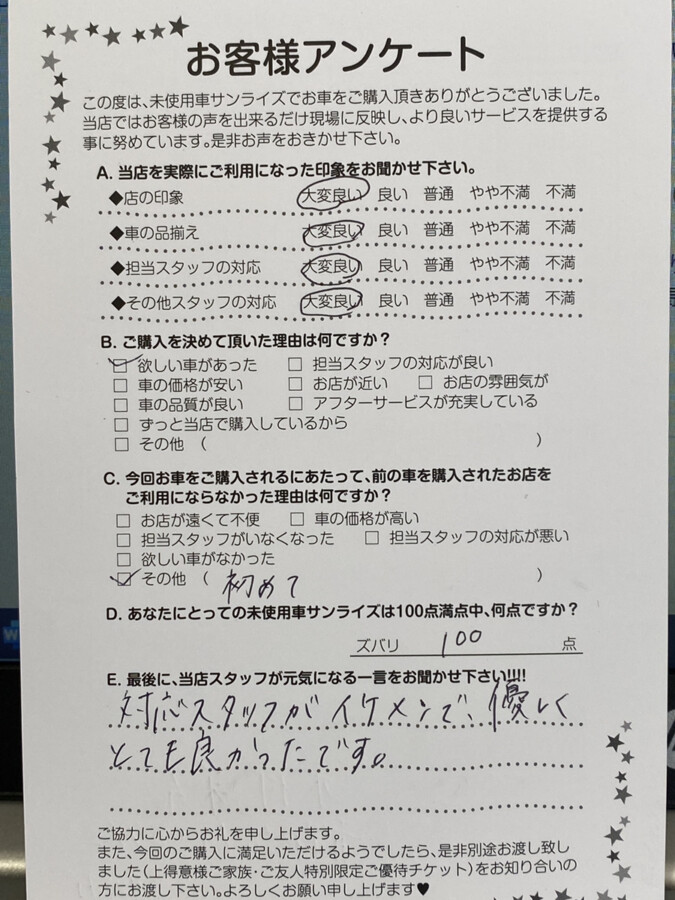 お客様アンケート
この度は、未使用車サンライズでお車をご購入頂きありがとうございました。
当店ではお客様の声を出来るだけ現場に反映し、より良いサービスを提供する
事に努めています。是非お声をおきかせ下さい。
A. 当店を実際にご利用になった印象をお聞かせ下さい。
◆店の印象 大変良い 良い 普通 やや不満 不満
◆車の品揃え 大変良い 良い 普通 やや不満 不満
◆担当スタッフの対応 大変良い 良い 普通 やや不満 不満
◆その他スタッフの対応 大変良い 良い 普通 やや不満 不満
B. ご購入を決めて頂いた理由は何ですか？
☑ 欲しい車があった □ 担当スタッフの対応が良い
□ 車の価格が安い □ お店が近い □ お店の雰囲気が
□ 車の品質が良い □ アフターサービスが充実している
□ ずっと当店で購入しているから
□ その他 （ ）
C. 今回お車をご購入されるにあたって、前の車を購入されたお店を
ご利用にならなかった理由は何ですか？
□ お店が遠くて不便 □ 車の価格が高い
□ 担当スタッフがいなくなった □ 担当スタッフの対応が悪い
□ 欲しい車がなかった
☑ その他 （ 初めて ）
D. あなたにとっての未使用車サンライズは100点満点中、何点ですか？
ズバリ 100 点
E. 最後に、当店スタッフが元気になる一言をお聞かせ下さい!!!!
対応スタッフがイケメンで、優しく
とても良かったです。
ご協力に心からお礼を申し上げます。
また、今回のご購入に満足いただけるようでしたら、是非別途お渡し致し
ました（上得意様ご家族・ご友人特別限定ご優待チケット）をお知り合いの
方にお渡し下さい。よろしくお願い申し上げます♥